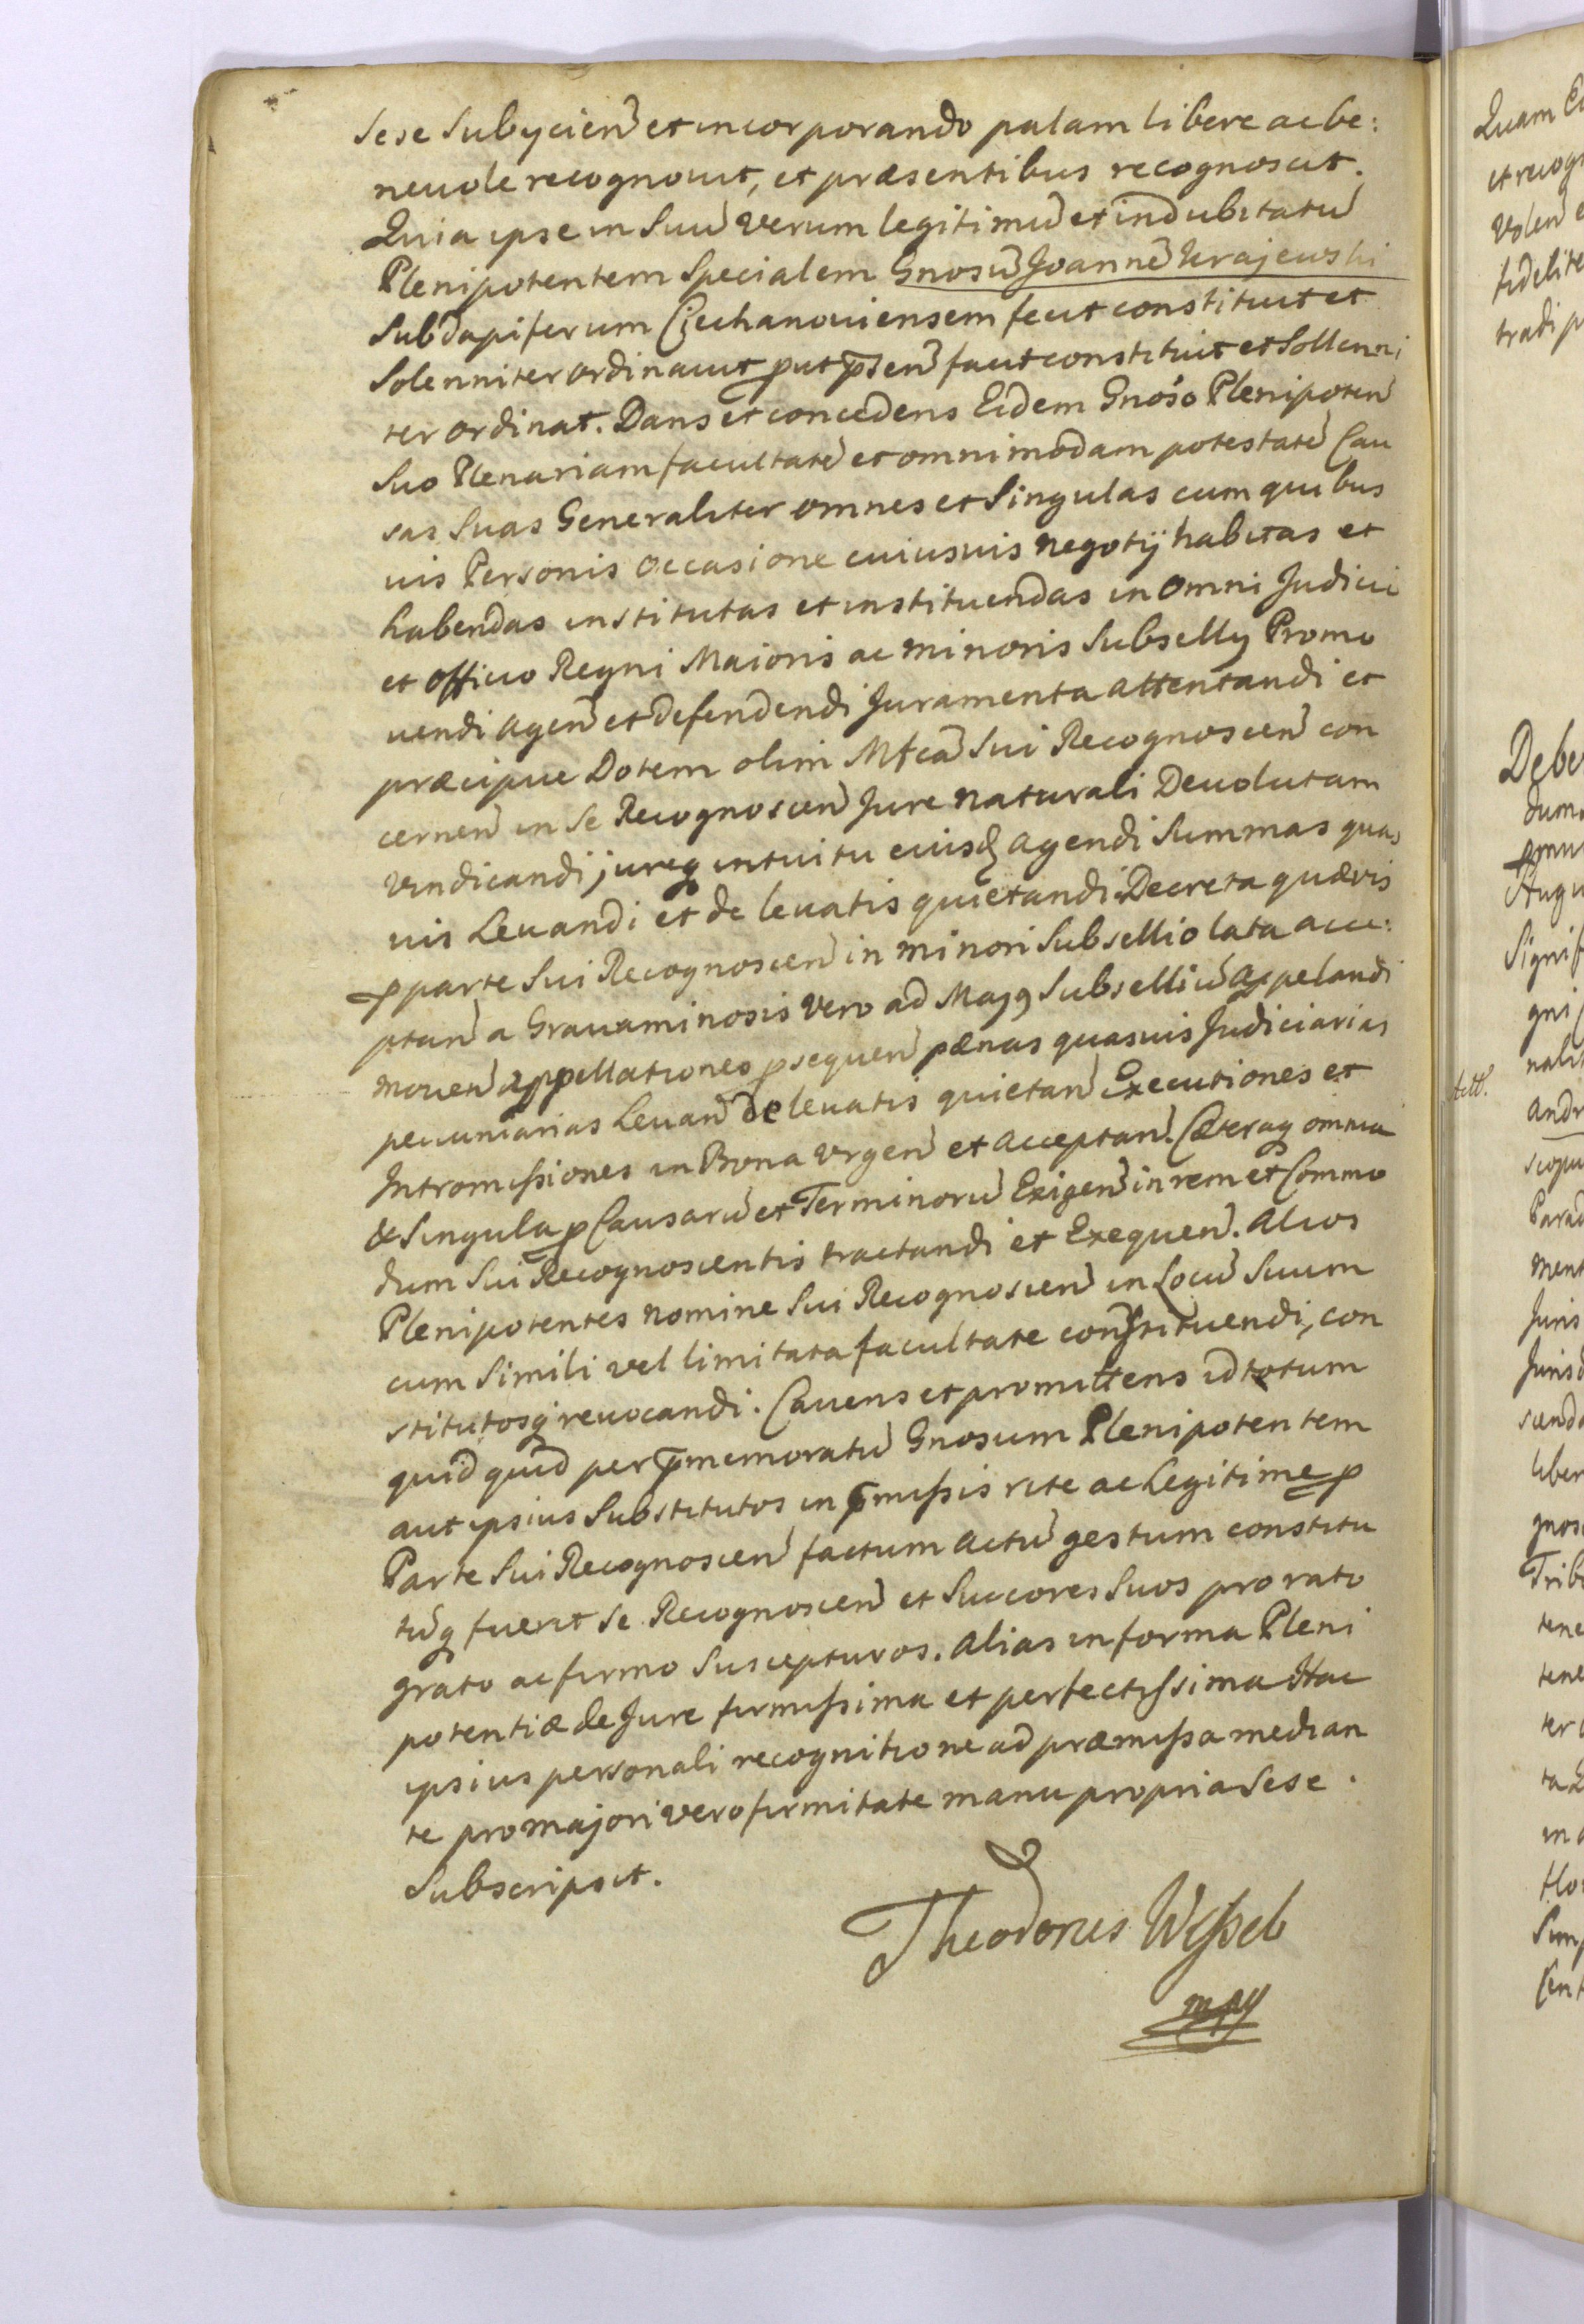 sese Subÿcien̄ et incorporando palam libere ac be:
neuole recognouit, et præsentibus recognoscit.
Quia ipse in Suū verum legitimū et indubitatū
Plenipotentem Specialem Gnosū Joannē Krajewski
Subdapiferum Ciechanouiensem fecit constituit et
Solenniter ordinauit ꝓut p̄sen̄ facit constituit et Sollenni
ter ordinat. Dans et concedens Eidem Gnoso Plenipoten̄
Suo Plenariam facultatē et omnimodam potestatē Cau
sas Suas Generaliter omnes et Singulas cum quibus
uis Personis occasione cuiusuis negotÿ habitas et
habendas institutas et instituendas in omni Judicii
et officio Regni Maioris ac minoris Subsellÿ Promo
uendi agen̄ et defendendi Juramenta attentandi et
præcipue Dotem olim Mfcā Sui Recognoscen̄ con
cernen̄ in Se Recognoscen̄ Jure naturali Deuolutam
vindicandi, jureq intuitu eiusd agendi Summas quas
uis Leuandi et de leuatis quietandi Decreta quævis
ꝓ parte Sui Recognoscen̄ in minori Subsellio lata acce:
ptan̄ a Grauaminosis vero ad Maj9 Subselliū appelandi
mouen̄ appellationes ꝓsequen̄ pænas quasuis Judiciarias
pecuniarias Leuan̄ de leuatis quietan̄ Executiones et
Intromissiones in Bona vrgen̄ et acceptan̄. Cæteraq omnia
& Singula ꝓ Causarū et Terminorū Exigen̄ in rem et Commo
dum Sui Recognoscentis tractandi et Exequen̄. alios
Plenipotentes nomine Sui Recognoscen̄ in Locū Suum
cum Simili vel limitata facultate constituendi, con
stitutosq reuocandi. Cauens et promittens id totum
quid quid per p̄memoratū Gnosum Plenipotentem
aut ipsius Substitutos in p̄missis rite ac Legitime ꝓ
Parte Sui Recognoscen̄ factum actū gestum constitu
tūq fuerit Se Recognoscen̄ et Succores Suos pro rato
grato ac firmo Suscepturos. alias in forma Pleni
potentiæ de Jure firmissima et perfectissima Hac
ipsius personali recognitione ad præmissa median
te pro majori vero firmitate manu propria Sese.
Subscripsit.
Theodorus Wessel
mpp